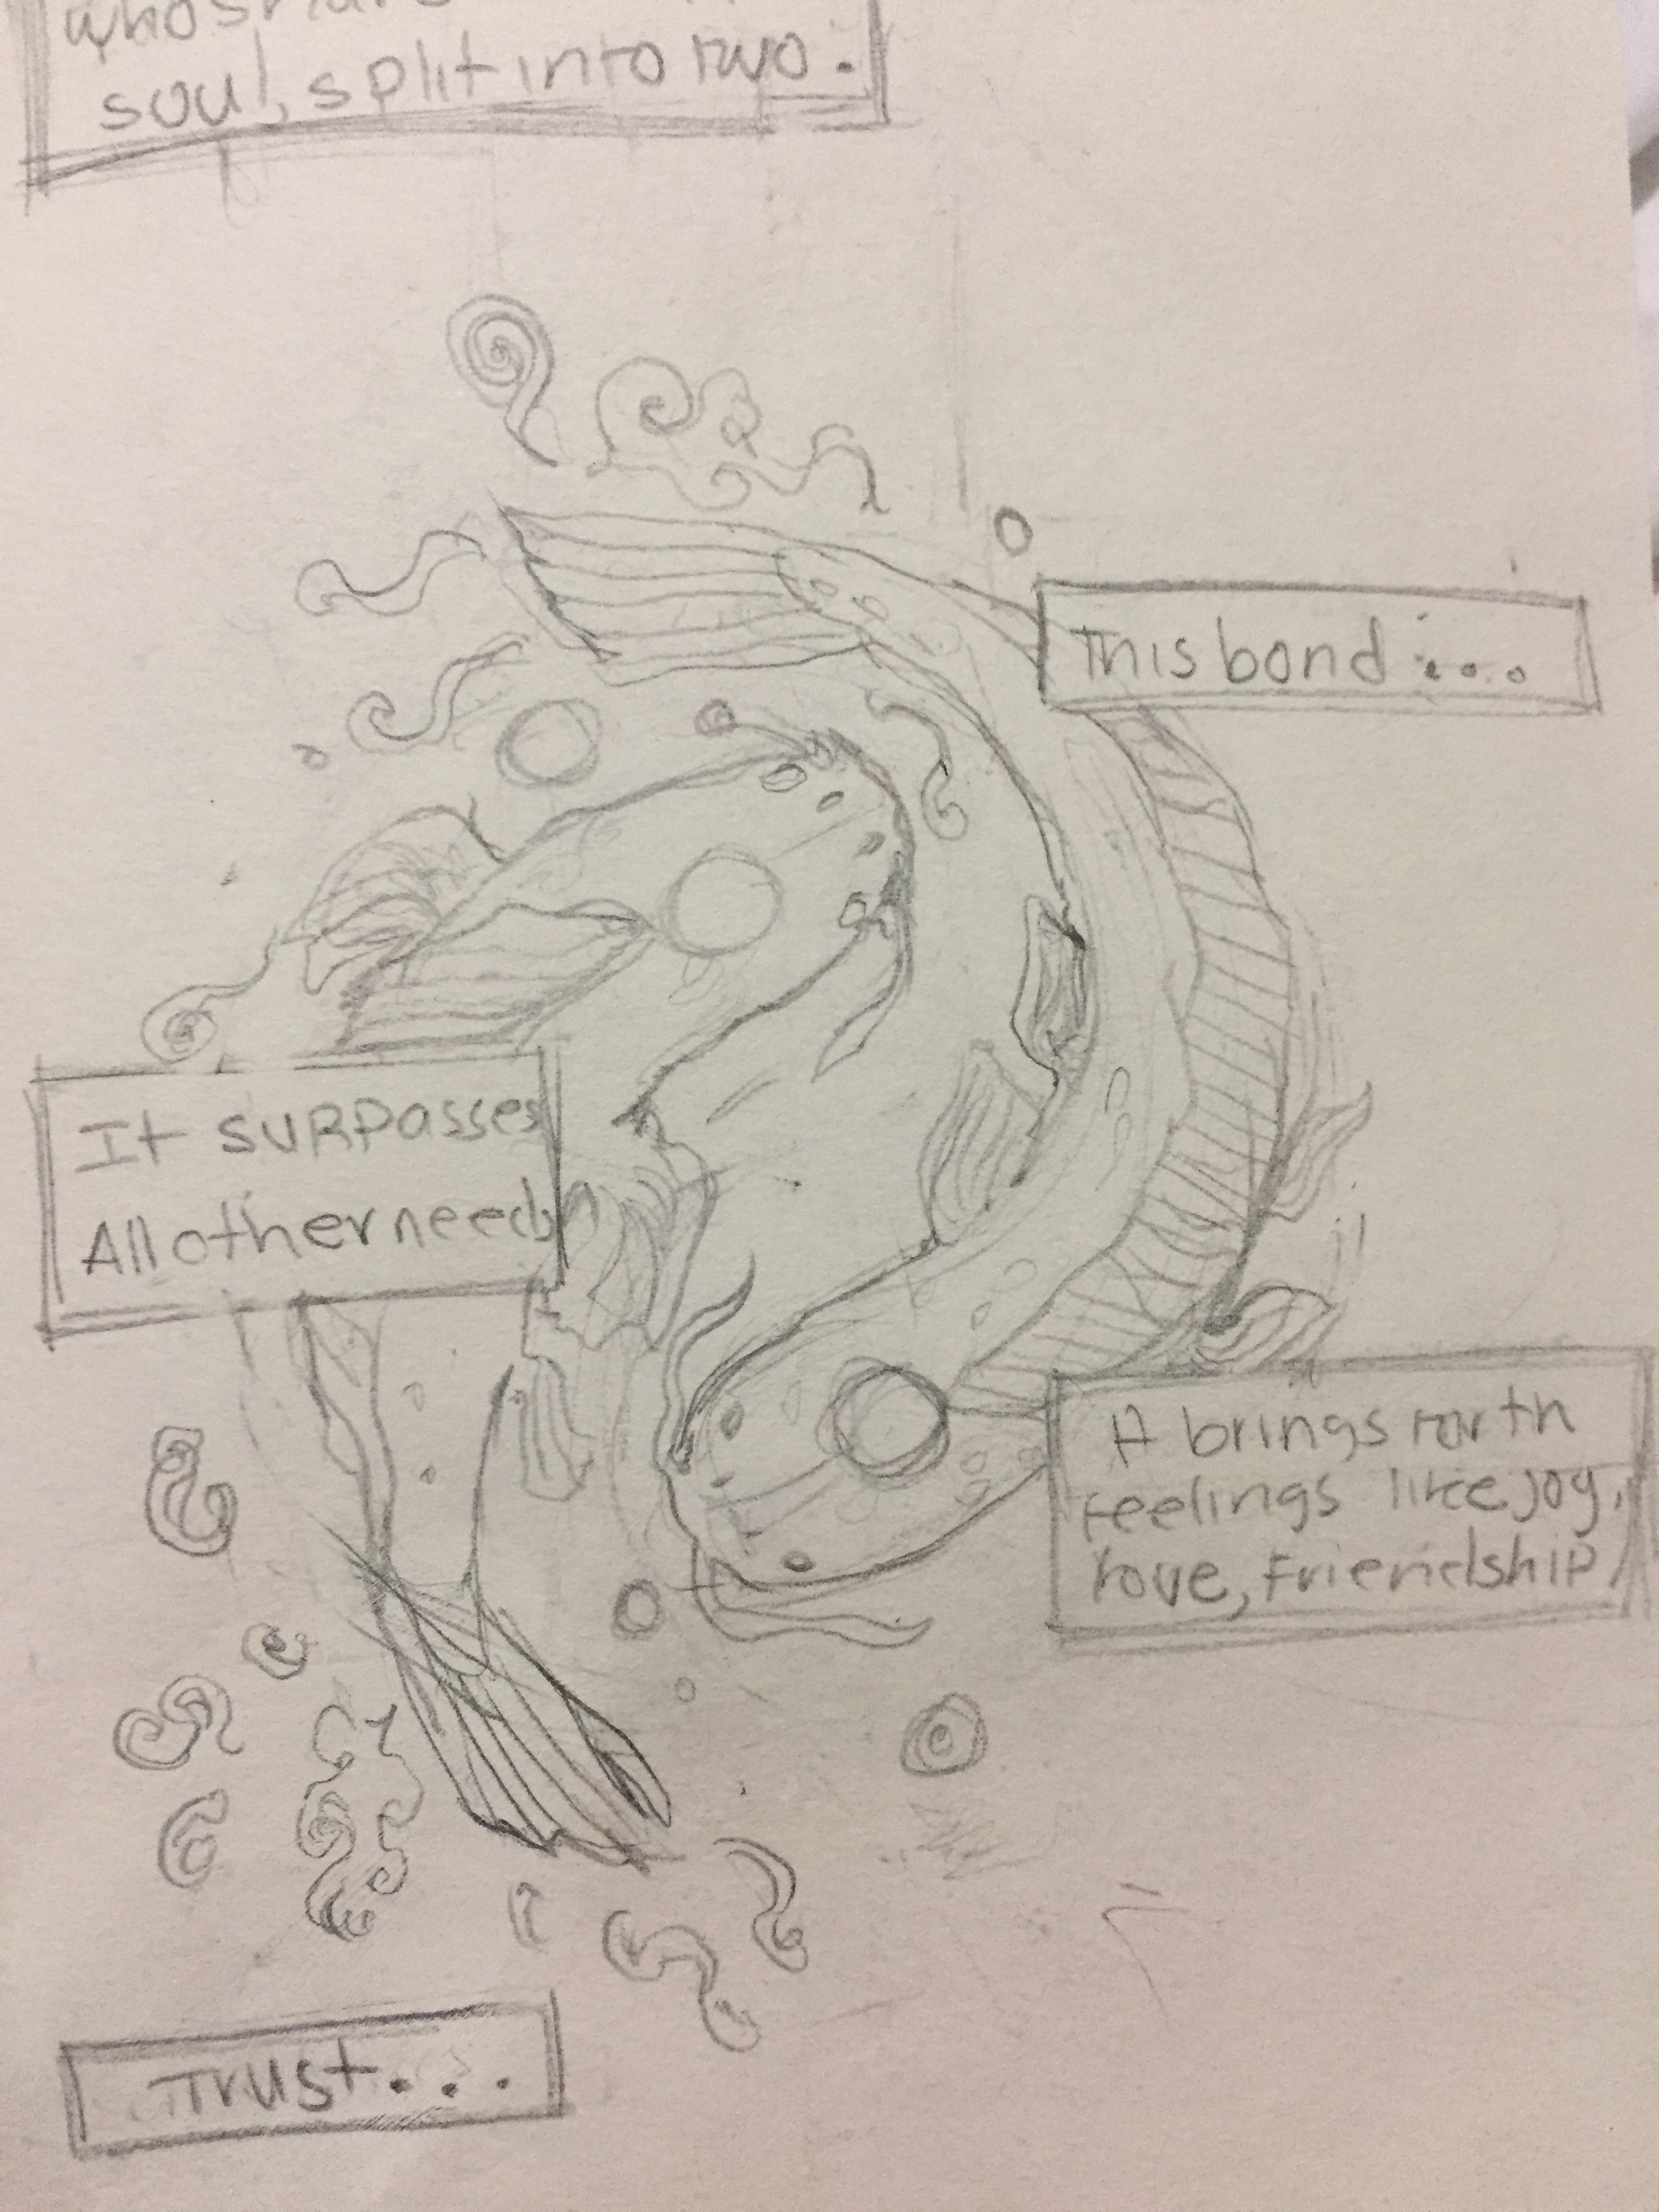 soul, split into two.
This bond....
It surpasses
All other needs
It brings forth
feelings like joy,
love, Friendship,
Trust...